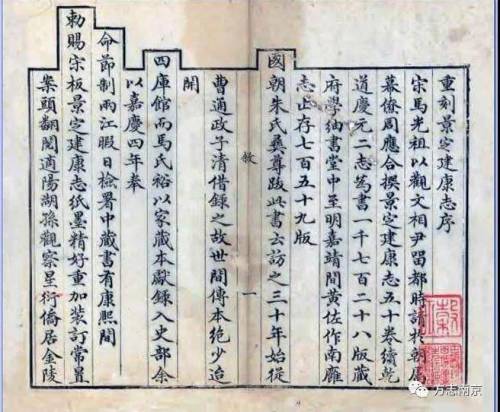 重刻景定建康志序
宋馬光祖以觀文相尹留都時請於朝屬
幕僚周應合撰景定建康志五十卷續乾
道慶元二志為書一千七百二十八版藏
府學紬書堂中至明嘉靖間黃佐作南廱
志止存七百五十九版
國朝朱氏彝尊跋此書云訪之三十年始從
敘 一
曹通政子清借錄之故世間傳本絕少迨
開
四庫館而馬氏裕以家藏本獻錄入史部余
以嘉慶四年奉
命節制兩江暇日檢署中藏書有康熙間
勅賜宋板景定建康志紙墨精好重加裝訂常置
案頭翻閱適陽湖孫觀察星衍僑居金陵
方志南京